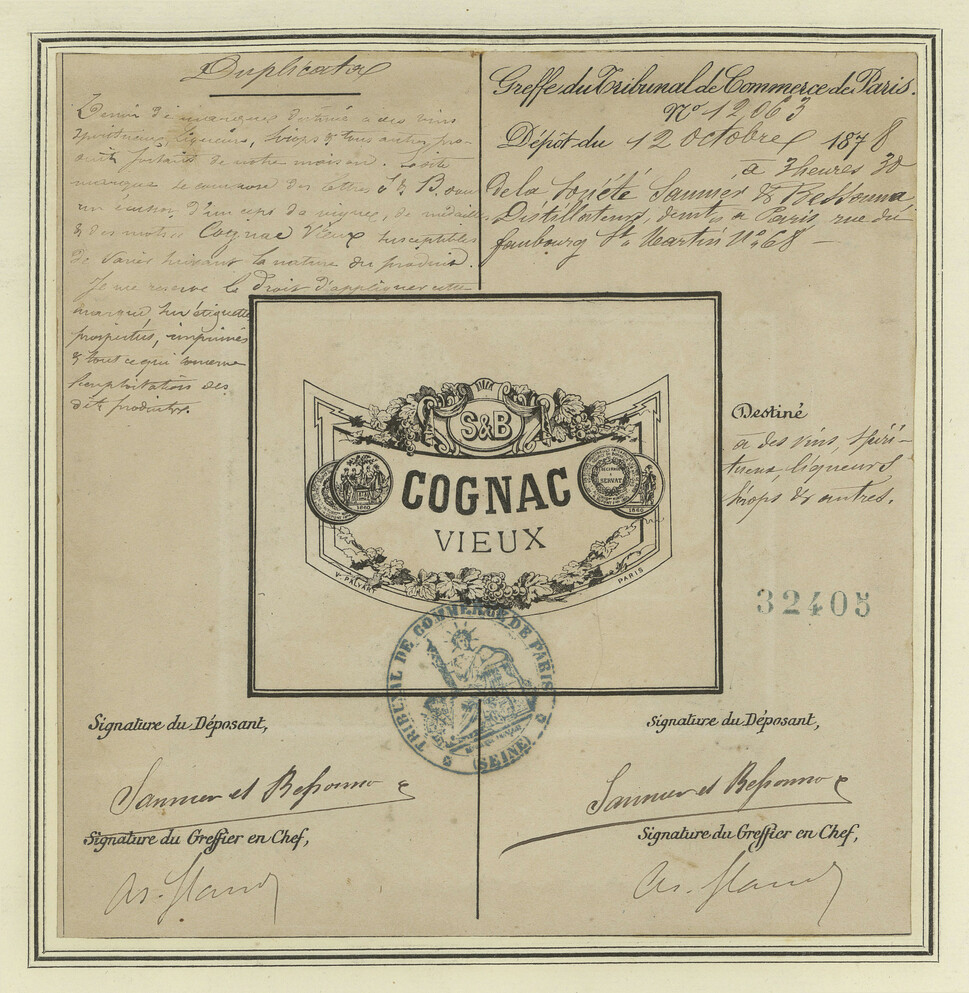 Duplicata
Dénvi de marque destiné a des vins
spiritueux, liqueurs, sirops & tous autres pro-
duits portants de notre maison. Ladite
marque se compose des lettres S & B. dans
un écusson, d'un ceps de vigne, de médailles
& des mots: Cognac Vieux susceptibles
de varier suivant la nature du produit.
Je me reserve le droit d'appliquer cette
marque, sur étiquettes
prospectus, imprimés
& tout ce qui concerne
l'exploitation des
dits produits.
Greffe du Tribunal de Commerce de Paris.
No 12063
Dépôt du 12 octobre 1878
à 3 heures 30
de la Société Saunier & Bessonna
Distillateurs, demts à Paris, rue du
faubourg St Martin No 68
S&B
COGNAC
VIEUX
1860
1860
SERVAT
V. PALYART
PARIS
Destiné
a des vins, spiri-
tueux, liqueurs
sirops & autres.
32405
TRIBUNAL DE COMMERCE DE PARIS
(SEINE)
Signature du Déposant,
Saunier et Bessonna
Signature du Greffier en Chef,
Signature du Déposant,
Saunier et Bessonna
Signature du Greffier en Chef,